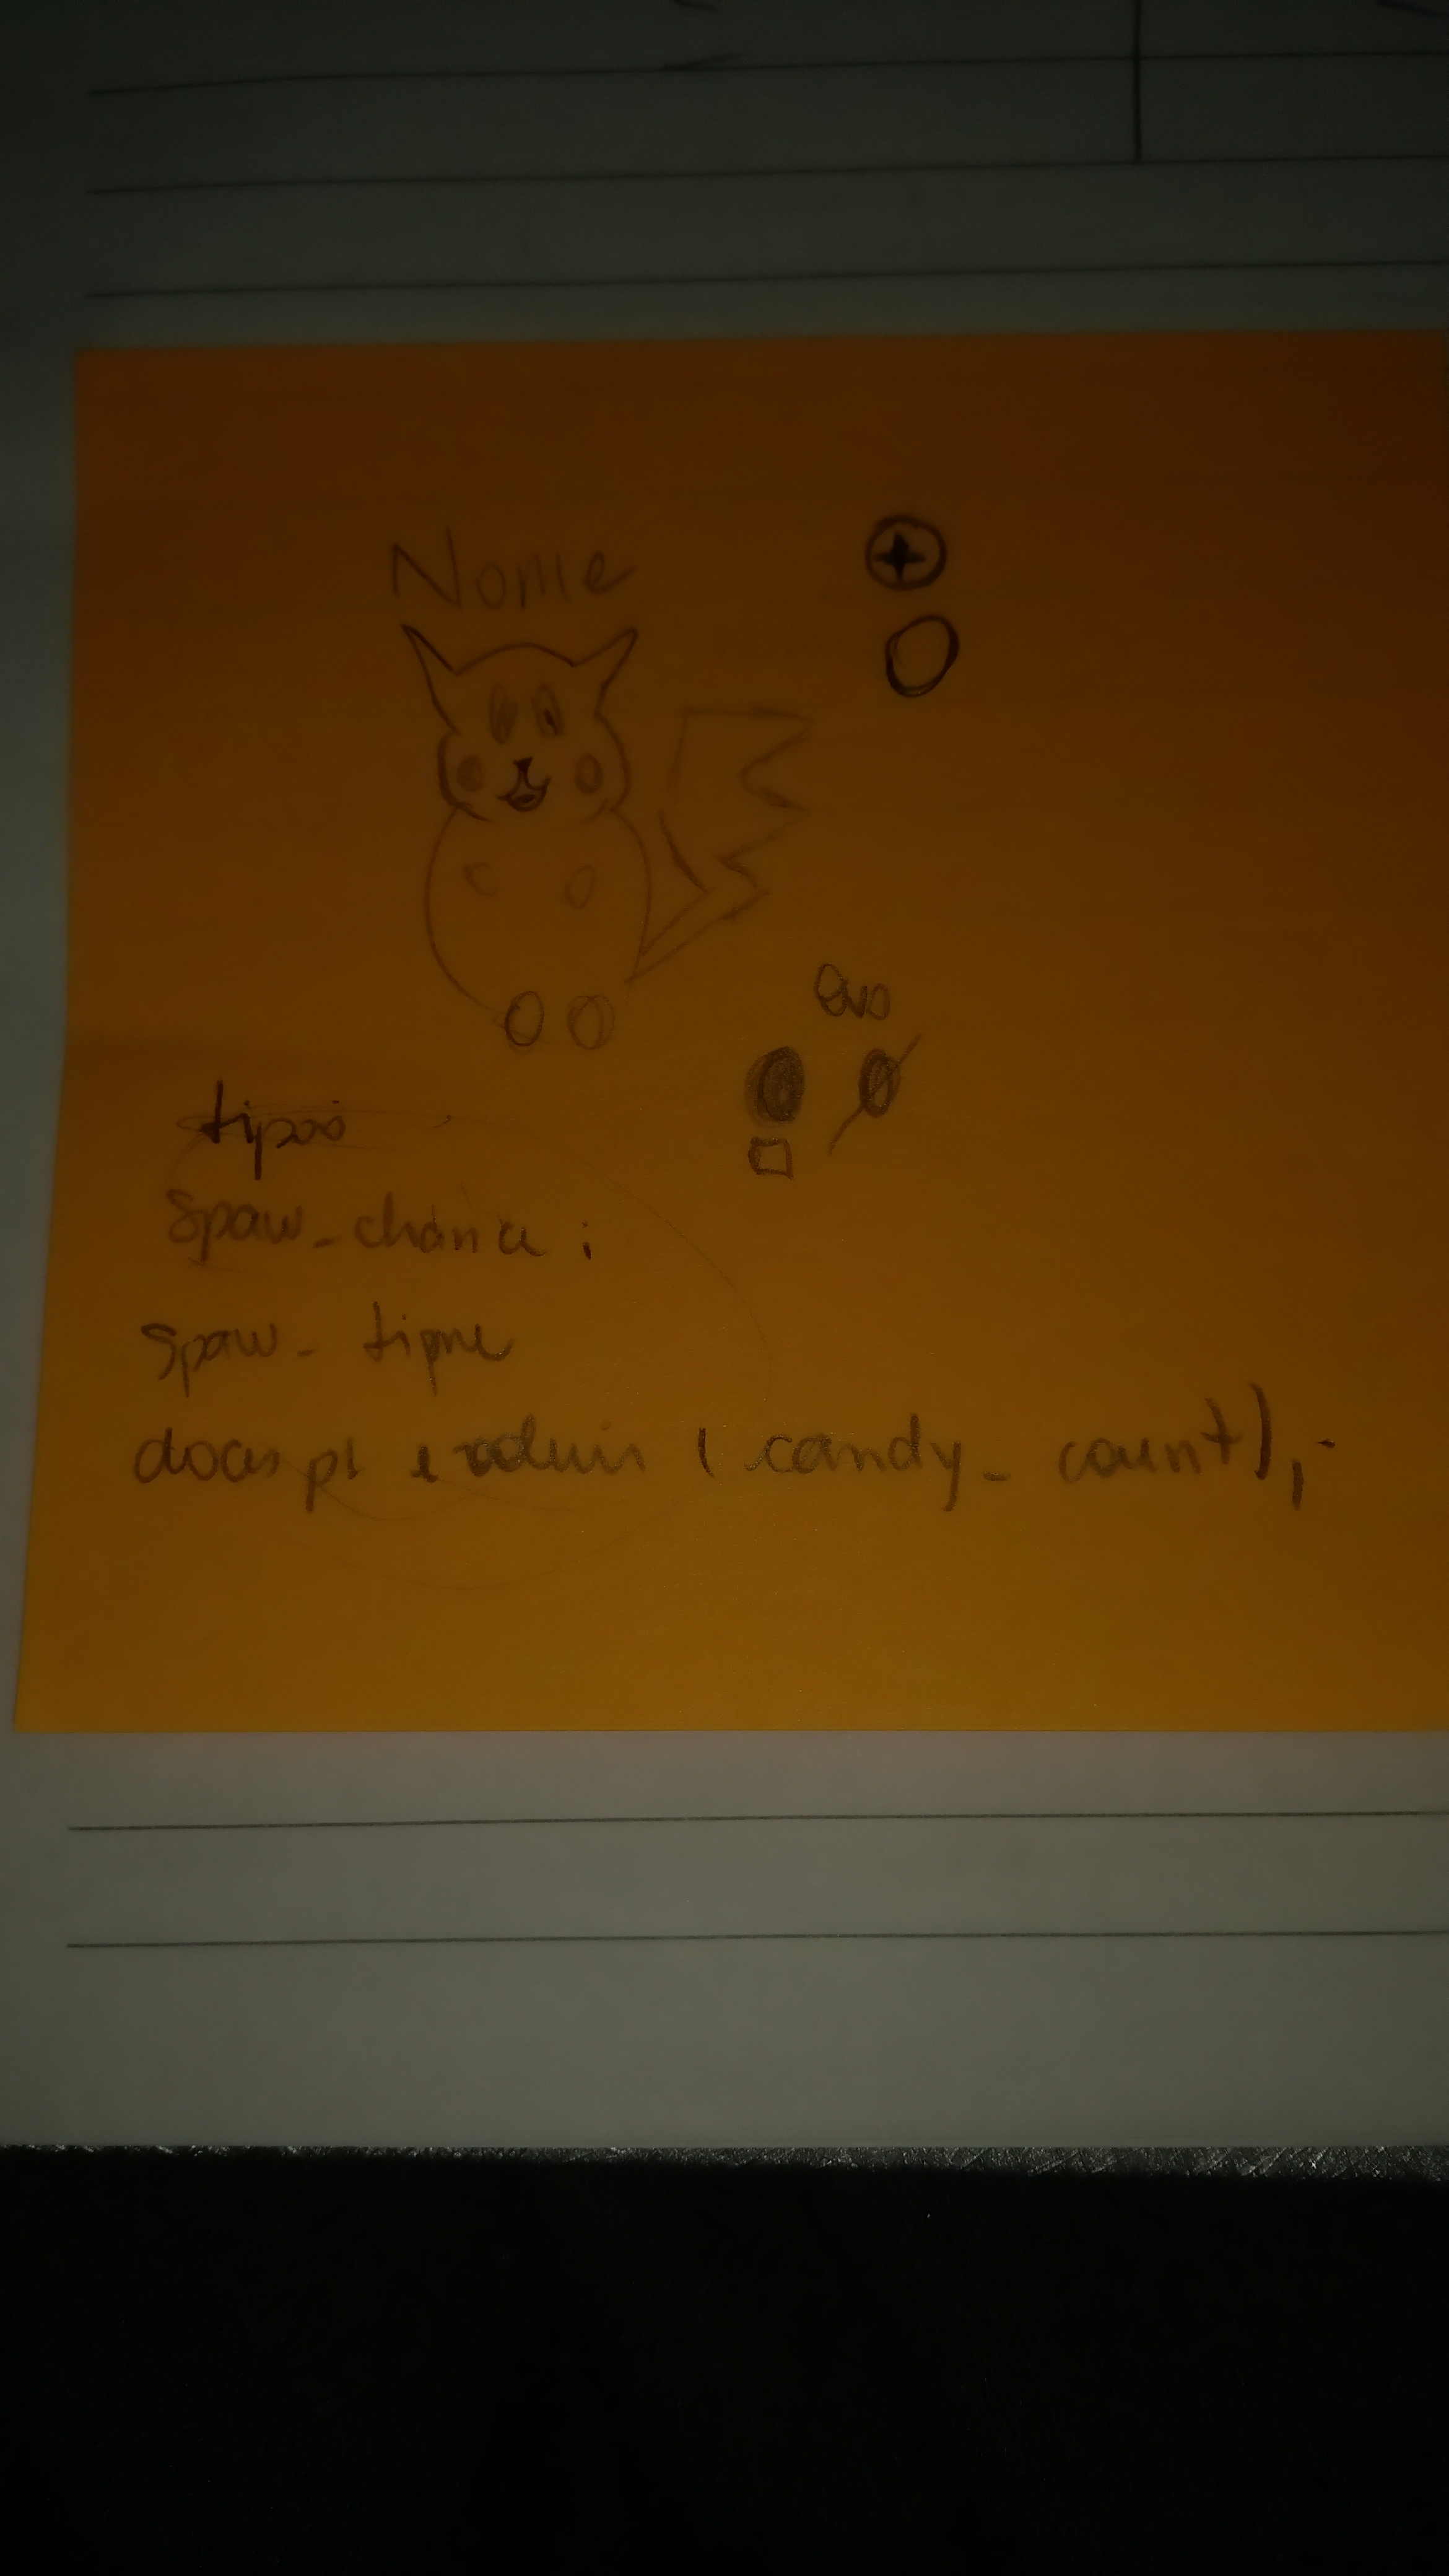 Nome
ovo
tipos
Spaw_chance :
spaw_ time
doces p/ evoluir (candy_ count),